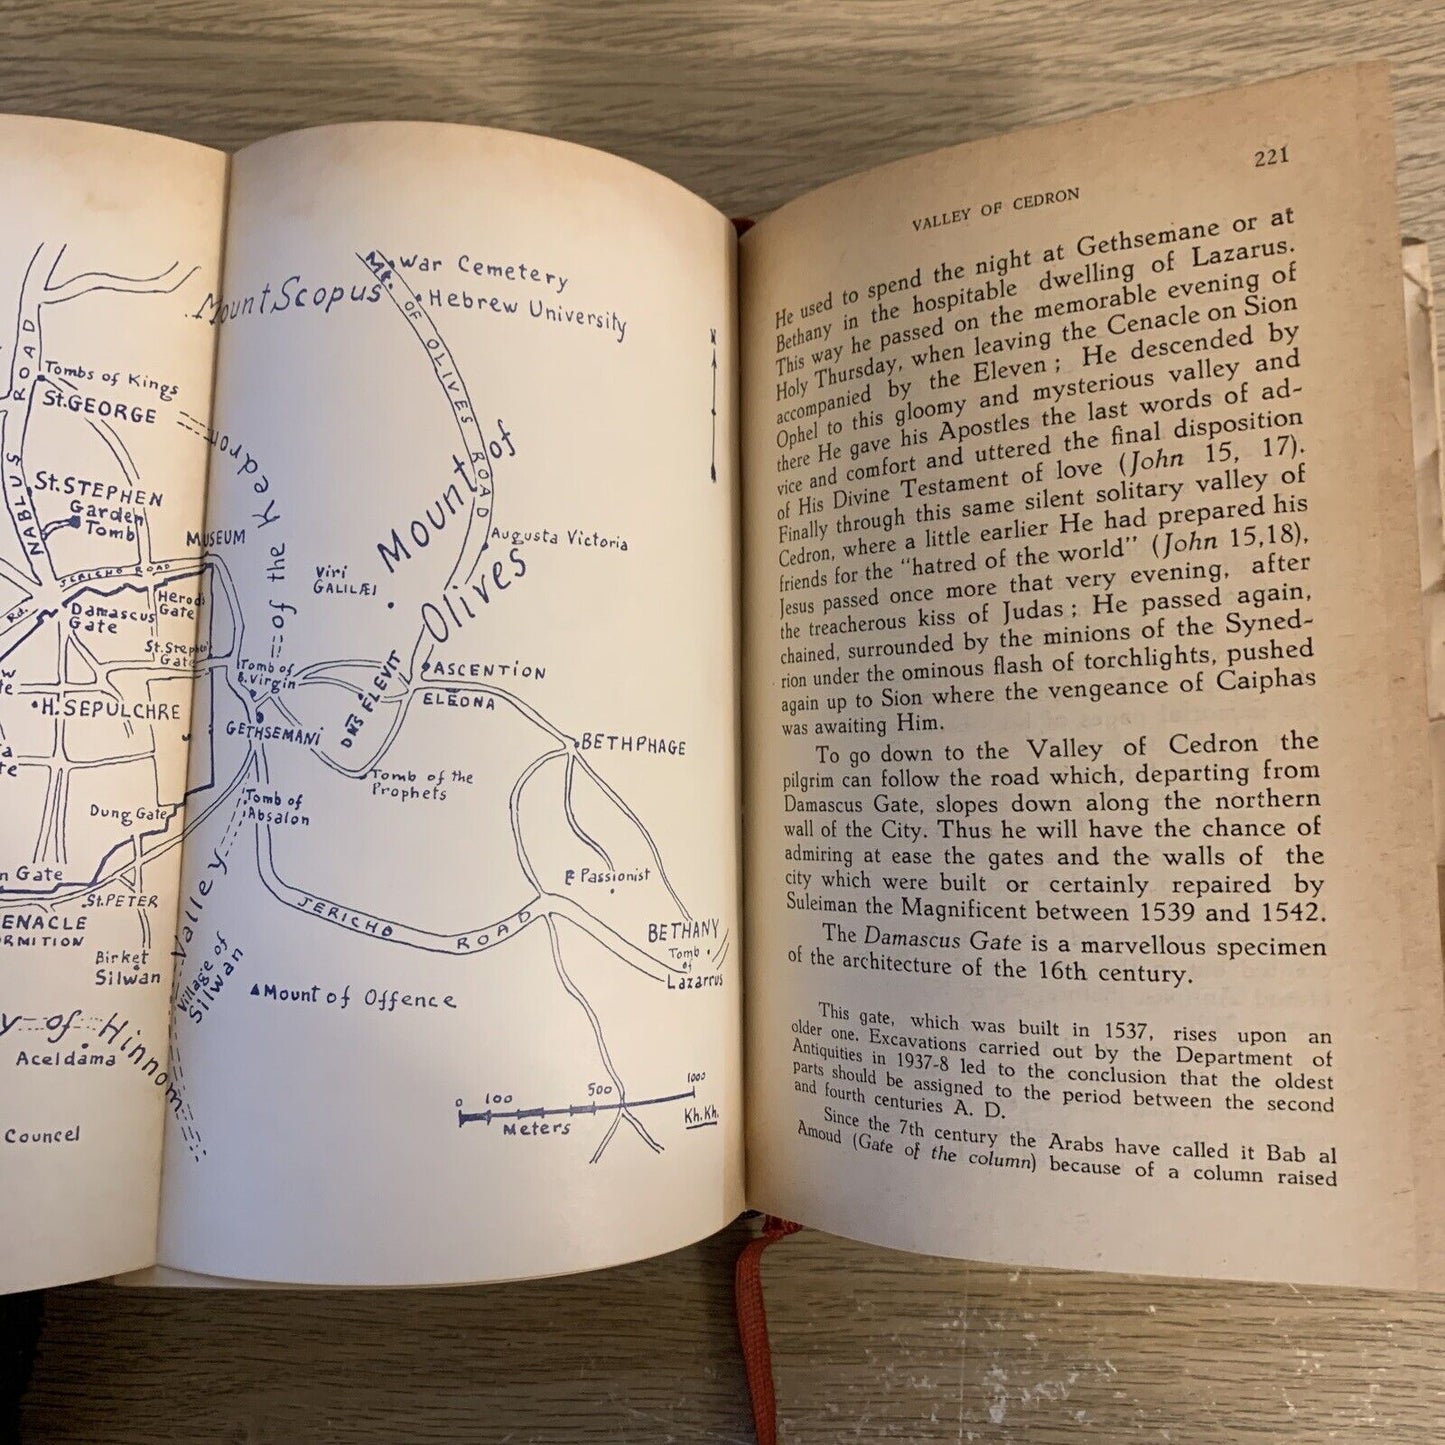 War Cemetery
Mount Scopus
Hebrew University
Mt. OF OLIVES ROAD
N
ROAD
Tombs of Kings
St. GEORGE
NABLUS
St. STEPHEN
Garden
Tomb
MUSEUM
Valley of the Kedron
JERICHO ROAD
Herod's
Gate
Rd.
Damascus
Gate
St. Stephen's
Gate
Viri
GALILÆI
Mount of
Olives
Augusta Victoria
Tomb of
B. Virgin
ASCENTION
ELEONA
DNS FLEVIT
H. SEPULCHRE
GETHSEMANI
BETHPHAGE
Tomb of the
Prophets
Tomb of
Absalon
Dung Gate
n Gate
St. PETER
ENACLE
ORMITION
Birket
Silwan
Village of
Silwan
JERICHO ROAD
Passionist
BETHANY
Tomb
of
Lazarrus
Mount of Offence
y of Hinnom
Aceldama
Councel
0 100 500 1000
Meters
Kh. Kh.
221
VALLEY OF CEDRON
He used to spend the night at Gethsemane or at
Bethany in the hospitable dwelling of Lazarus.
This way he passed on the memorable evening of
Holy Thursday, when leaving the Cenacle on Sion
accompanied by the Eleven ; He descended by
Ophel to this gloomy and mysterious valley and
there He gave his Apostles the last words of ad-
vice and comfort and uttered the final disposition
of His Divine Testament of love (John 15, 17).
Finally through this same silent solitary valley of
Cedron, where a little earlier He had prepared his
friends for the "hatred of the world" (John 15,18),
Jesus passed once more that very evening, after
the treacherous kiss of Judas ; He passed again,
chained, surrounded by the minions of the Syned-
rion under the ominous flash of torchlights, pushed
again up to Sion where the vengeance of Caiphas
was awaiting Him.
To go down to the Valley of Cedron the
pilgrim can follow the road which, departing from
Damascus Gate, slopes down along the northern
wall of the City. Thus he will have the chance of
admiring at ease the gates and the walls of the
city which were built or certainly repaired by
Suleiman the Magnificent between 1539 and 1542.
The Damascus Gate is a marvellous specimen
of the architecture of the 16th century.
This gate, which was built in 1537, rises upon an
older one. Excavations carried out by the Department of
Antiquities in 1937-8 led to the conclusion that the oldest
parts should be assigned to the period between the second
and fourth centuries A. D.
Since the 7th century the Arabs have called it Bab al
Amoud (Gate of the column) because of a column raised